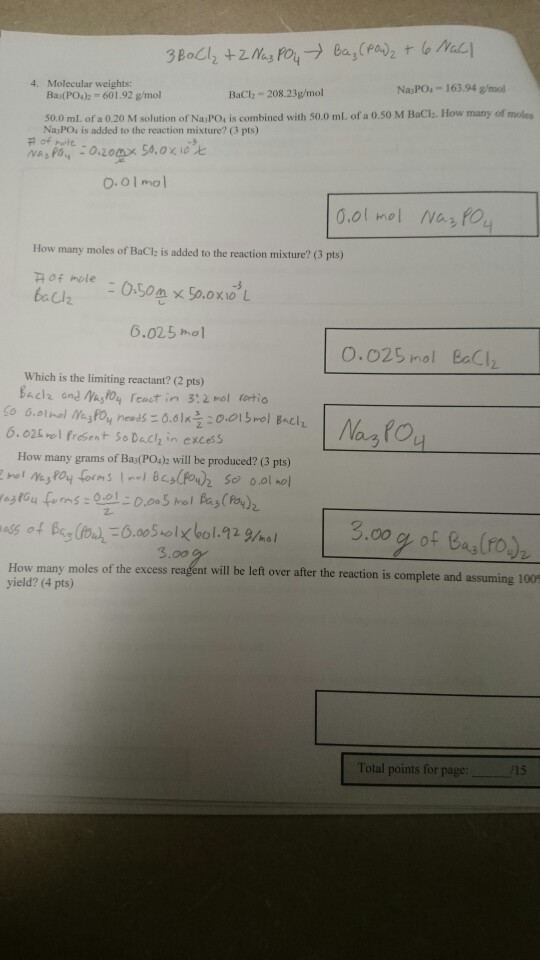 3BaCl₂ + 2 Na₃PO₄ → Ba₃(PO₄)₂ + 6 NaCl
4. Molecular weights:
Ba₃(PO₄)₂ = 601.92 g/mol BaCl₂ = 208.23g/mol Na₃PO₄ = 163.94 g/mol
50.0 mL of a 0.20 M solution of Na₃PO₄ is combined with 50.0 mL of a 0.50 M BaCl₂. How many of moles
Na₃PO₄ is added to the reaction mixture? (3 pts)
# of mole
Na₃PO₄ = 0.20 m/L x 50.0 x 10⁻³ L
0.01 mol
0.01 mol Na₃PO₄
How many moles of BaCl₂ is added to the reaction mixture? (3 pts)
# of mole
BaCl₂ = 0.50 m/L x 50.0x10⁻³ L
0.025 mol
0.025 mol BaCl₂
Which is the limiting reactant? (2 pts)
Bacl₂ and Na₃PO₄ react in 3:2 mol ratio
so 0.01mol Na₃PO₄ needs = 0.01x 3/2 = 0.015mol Bacl₂
0.025 mol Present so BaCl₂ in excess
Na₃PO₄
How many grams of Ba₃(PO₄)₂ will be produced? (3 pts)
2 mol Na₃PO₄ forms 1 mol Ba₃(PO₄)₂ so 0.01 mol
Na₃PO₄ forms = 0.01/2 = 0.005 mol Ba₃(PO₄)₂
mass of Ba₃(PO₄)₂ = 0.005 mol x 601.92 g/mol
3.00 g
3.00 g of Ba₃(PO₄)₂
How many moles of the excess reagent will be left over after the reaction is complete and assuming 100%
yield? (4 pts)
Total points for page: ____/15